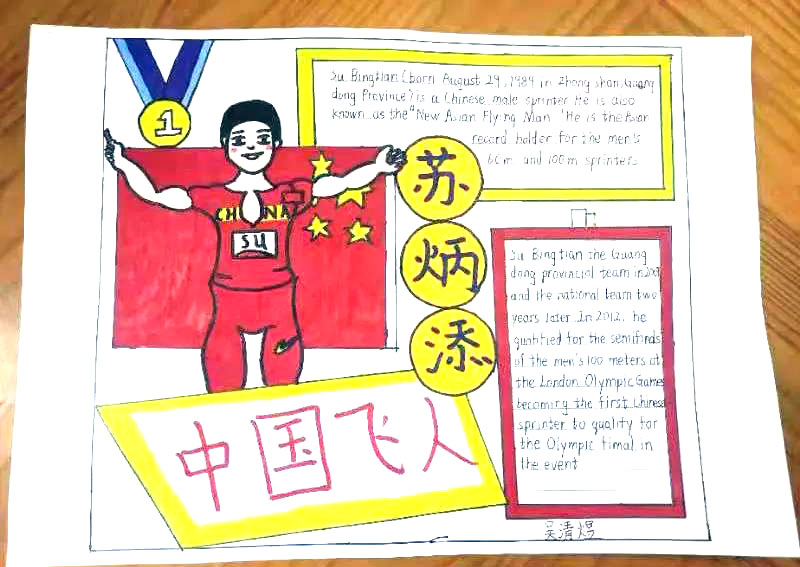 1
Su Bingtian (born August 29, 1989 in Zhong shan, Guang
dong Province) is a Chinese male sprinter He is also
known as the "New Asian Flying Man" He is the Asian
record holder for the men's
60m and 100m sprinters
CHINA
SU
苏
炳
添
Su Bingtian the Guang
dong provincial team in
and the national team two
years later. In 2012, he
qualified for the semifinals
of the men's 100 meters at
the London Olympic Games
becoming the first Chinese
sprinter to quality for
the Olympic fimal in
the event
中国飞人
吴清煜